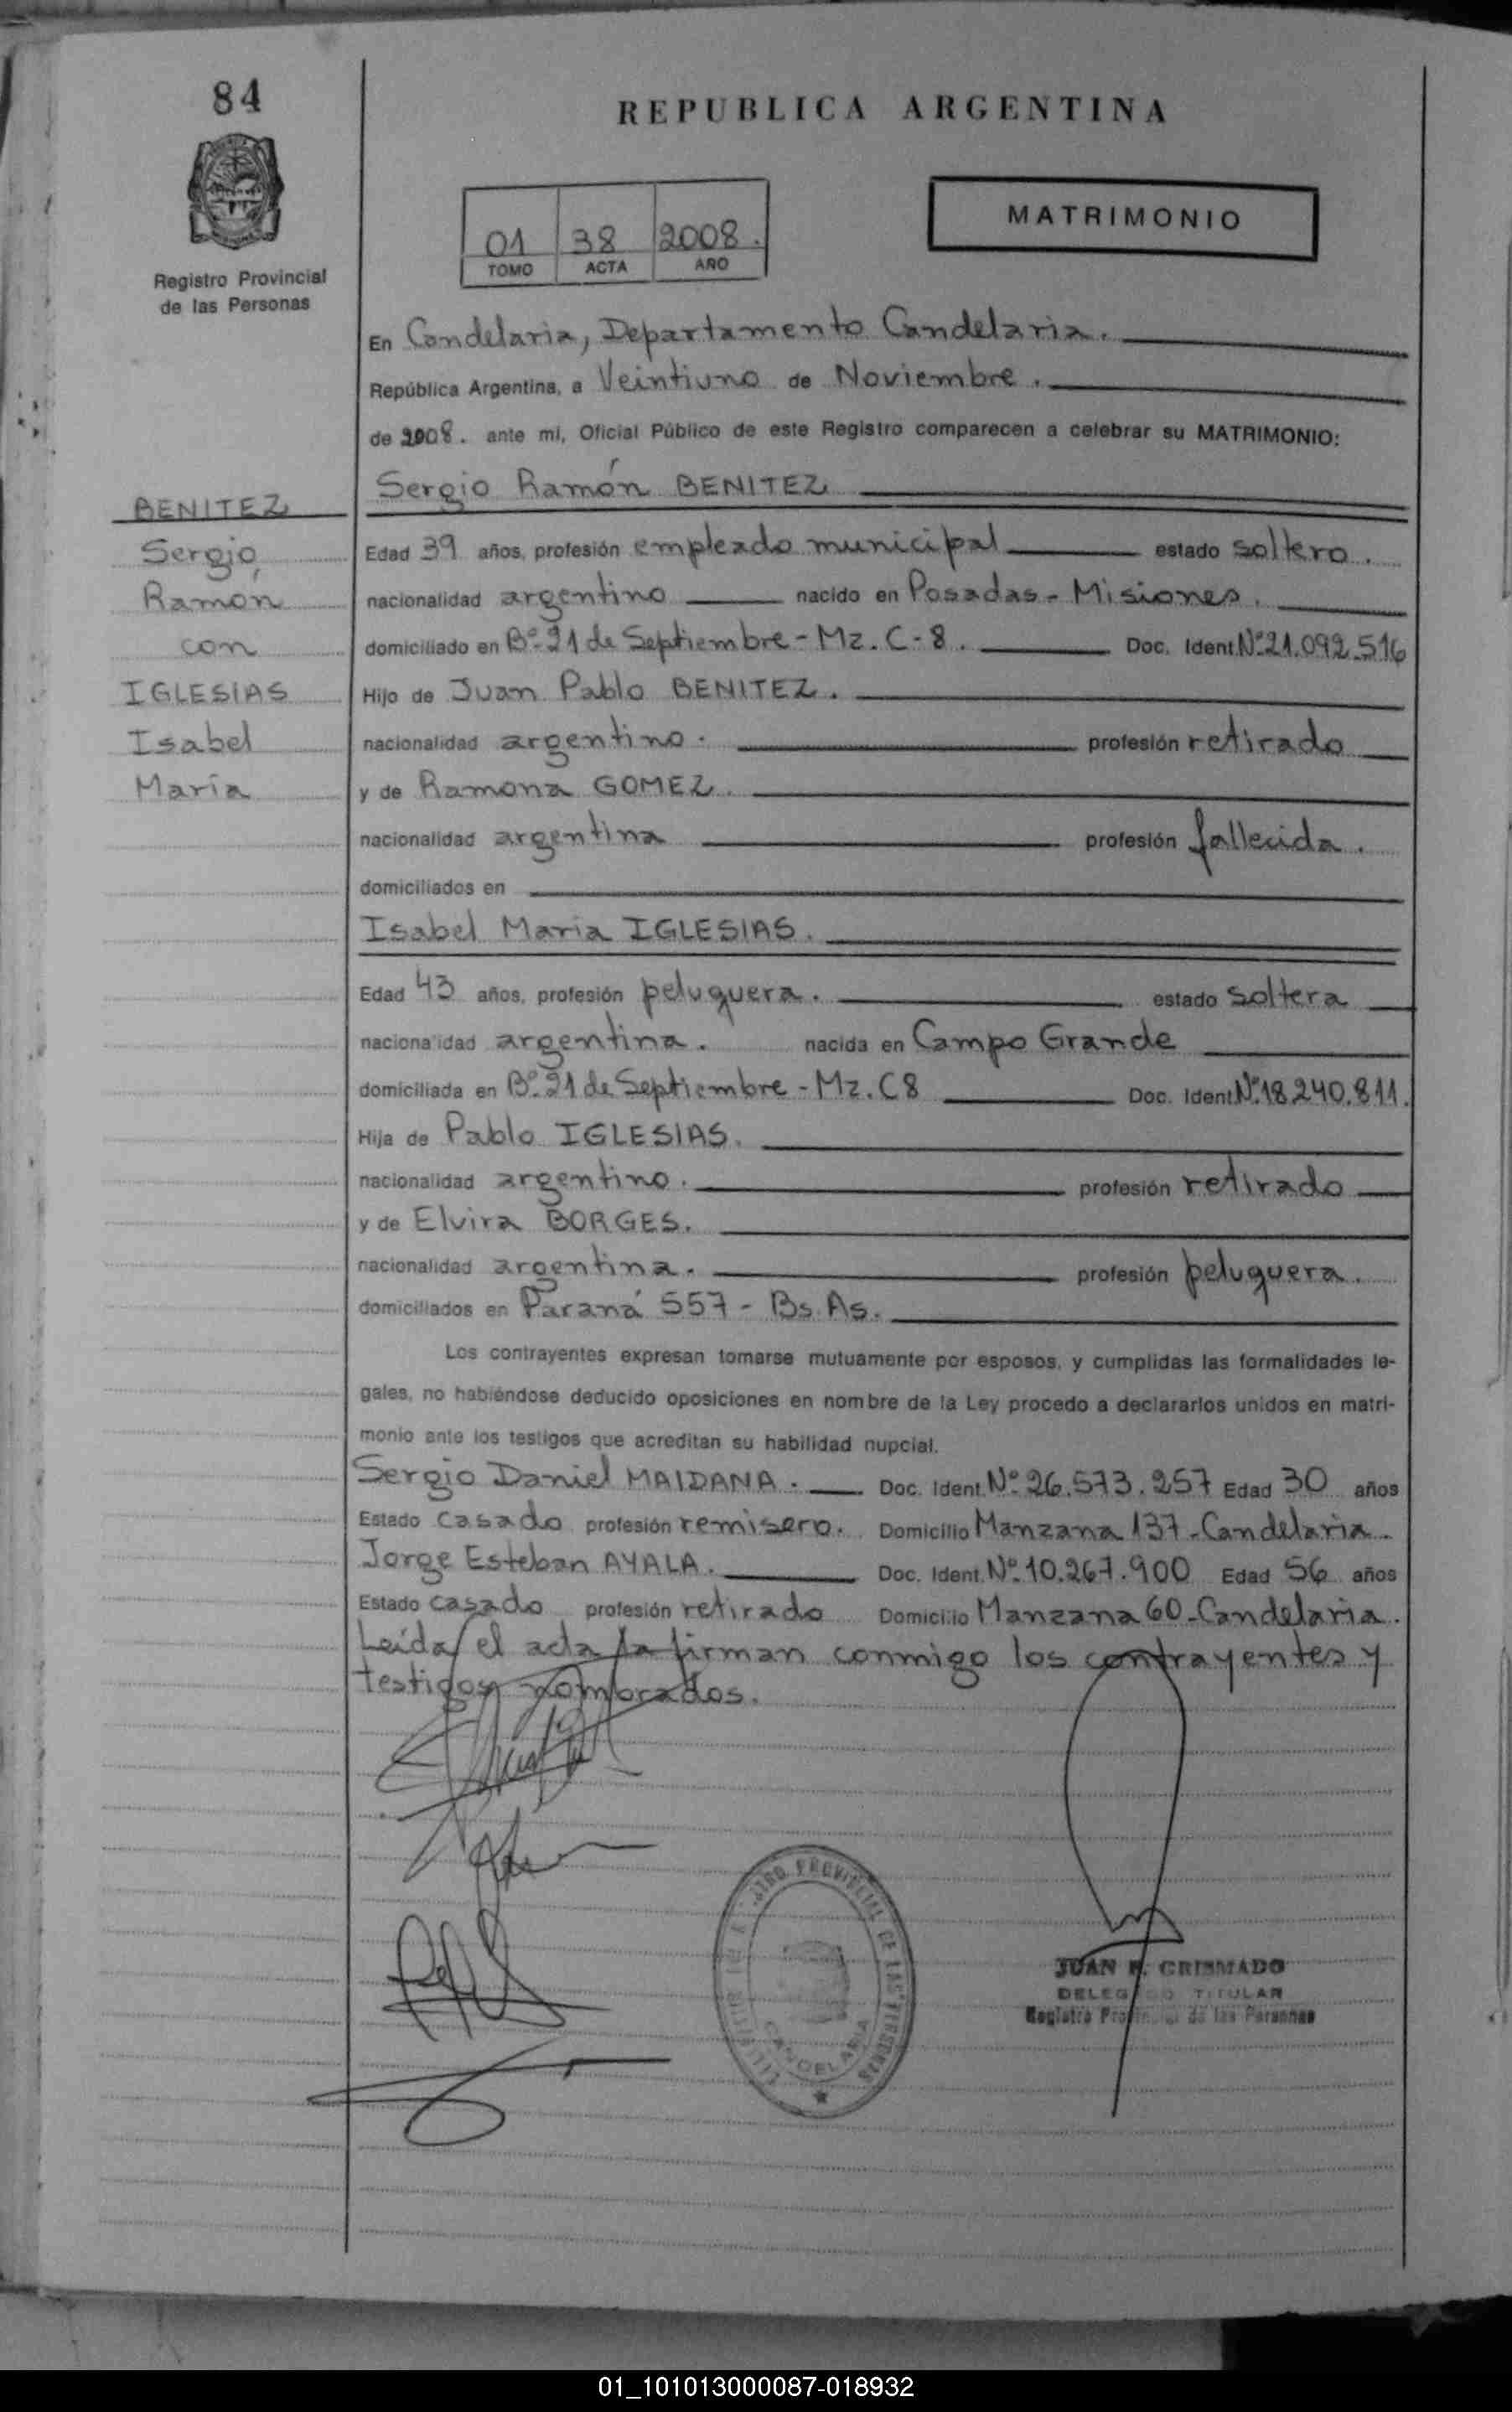 84
REPUBLICA ARGENTINA
Registro Provincial
de las Personas
01 38 2008.
TOMO ACTA AÑO
MATRIMONIO
En Candelaria, Departamento Candelaria.
República Argentina, a Veintiuno de Noviembre.
de 2008. ante mi, Oficial Público de este Registro comparecen a celebrar su MATRIMONIO:
BENITEZ
Sergio
Ramón
con
IGLESIAS
Isabel
María
Sergio Ramón BENITEZ
Edad 39 años, profesión empleado municipal estado soltero.
nacionalidad argentino nacido en Posadas - Misiones.
domiciliado en Bº 21 de Septiembre - Mz. C - 8. Doc. Ident. Nº 21.092.516
Hijo de Juan Pablo BENITEZ.
nacionalidad argentino. profesión retirado
y de Ramona GOMEZ.
nacionalidad argentina profesión fallecida.
domiciliados en
Isabel Maria IGLESIAS.
Edad 43 años, profesión peluquera. estado soltera
nacionalidad argentina. nacida en Campo Grande
domiciliada en Bº 21 de Septiembre - Mz. C8 Doc. Ident. Nº 18.240.811.
Hija de Pablo IGLESIAS.
nacionalidad argentino. profesión retirado
y de Elvira BORGES.
nacionalidad argentina. profesión peluquera.
domiciliados en Paraná 557 - Bs. As.
Los contrayentes expresan tomarse mutuamente por esposos, y cumplidas las formalidades le-
gales, no habiéndose deducido oposiciones en nombre de la Ley procedo a declararlos unidos en matri-
monio ante los testigos que acreditan su habilidad nupcial.
Sergio Daniel MAIDANA. Doc. Ident. Nº 26.573.257 Edad 30 años
Estado casado profesión remisero. Domicilio Manzana 137 - Candelaria.
Jorge Esteban AYALA. Doc. Ident. Nº 10.267.900 Edad 56 años
Estado casado profesión retirado Domicilio Manzana 60 - Candelaria.
Leída el acta la firman conmigo los contrayentes y
testigos nombrados.
PROVINCIAL DE LAS PERSONAS
CANDELARIA
JUAN CRISMADO
DELEGADO TITULAR
Registro Provincial de las Personas
01_101013000087-018932